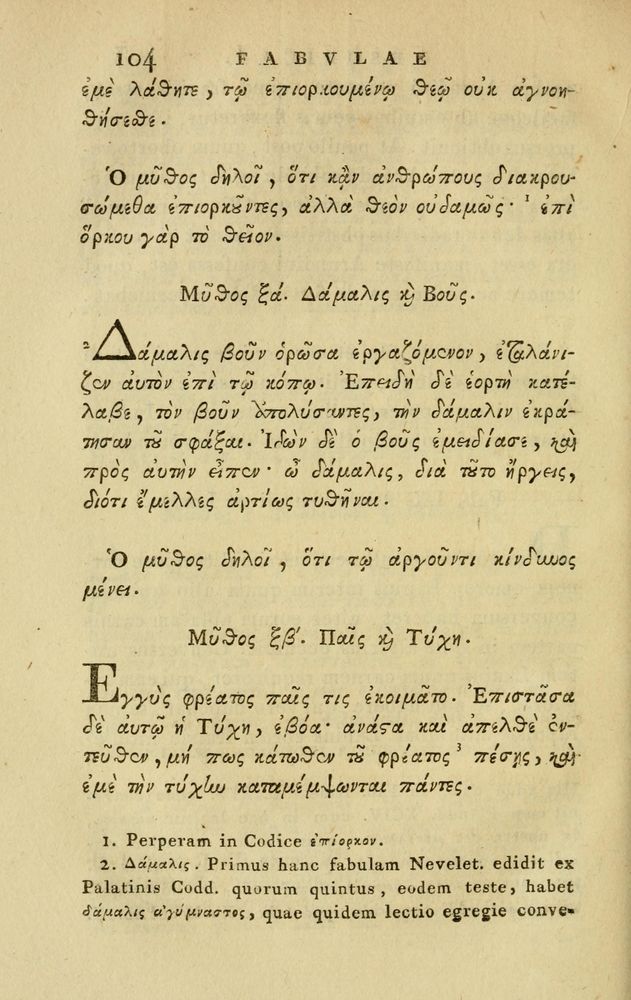 104 FABVLAE
ἐμὲ λάθητε, τῷ ἐπιορκουμένῳ θεῷ οὐκ ἀγνοη-
θήσεσθε.
Ὁ μῦθος δηλοῖ, ὅτι κἂν ἀνθρώπους διακρου-
σώμεθα ἐπιορκοῦντες, ἀλλὰ θεὸν οὐδαμῶς· ¹ ἐπὶ
ὅρκου γὰρ τὸ θεῖον.
Μῦθος ξά. Δάμαλις καὶ Βοῦς.
² Δάμαλις βοῦν ὁρῶσα ἐργαζόμενον, ἐταλάνι-
ζεν αὐτὸν ἐπὶ τῷ κόπῳ. Ἐπειδὴ δὲ ἑορτὴ κατέ-
λαβε, τὸν βοῦν ἀπολύσαντες, τὴν δάμαλιν ἐκρά-
τησαν τοῦ σφάξαι. Ἰδὼν δὲ ὁ βοῦς ἐμειδίασε, καὶ
πρὸς αὐτὴν εἶπεν· ὦ δάμαλις, διὰ τοῦτο ἤργεις,
διότι ἔμελλες ἀρτίως τυθῆναι.
Ὁ μῦθος δηλοῖ, ὅτι τῷ ἀργοῦντι κίνδυνος
μένει.
Μῦθος ξβ´. Παῖς καὶ Τύχη.
Εγγὺς φρέατος παῖς τις ἐκοιμᾶτο. Ἐπιστᾶσα
δὲ αὐτῷ ἡ Τύχη, ἐβόα· ἀνάστα καὶ ἄπελθε ἐν-
τεῦθεν, μή πως κάτωθεν τοῦ φρέατος ³ πέσῃς, καὶ
ἐμὲ τὴν τύχην καταμέμψωνται πάντες.
1. Perperam in Codice ἐπίορκον.
2. Δάμαλις. Primus hanc fabulam Nevelet. edidit ex
Palatinis Codd. quorum quintus, eodem teste, habet
δάμαλις ἀγύμναστος, quae quidem lectio egregie conve-